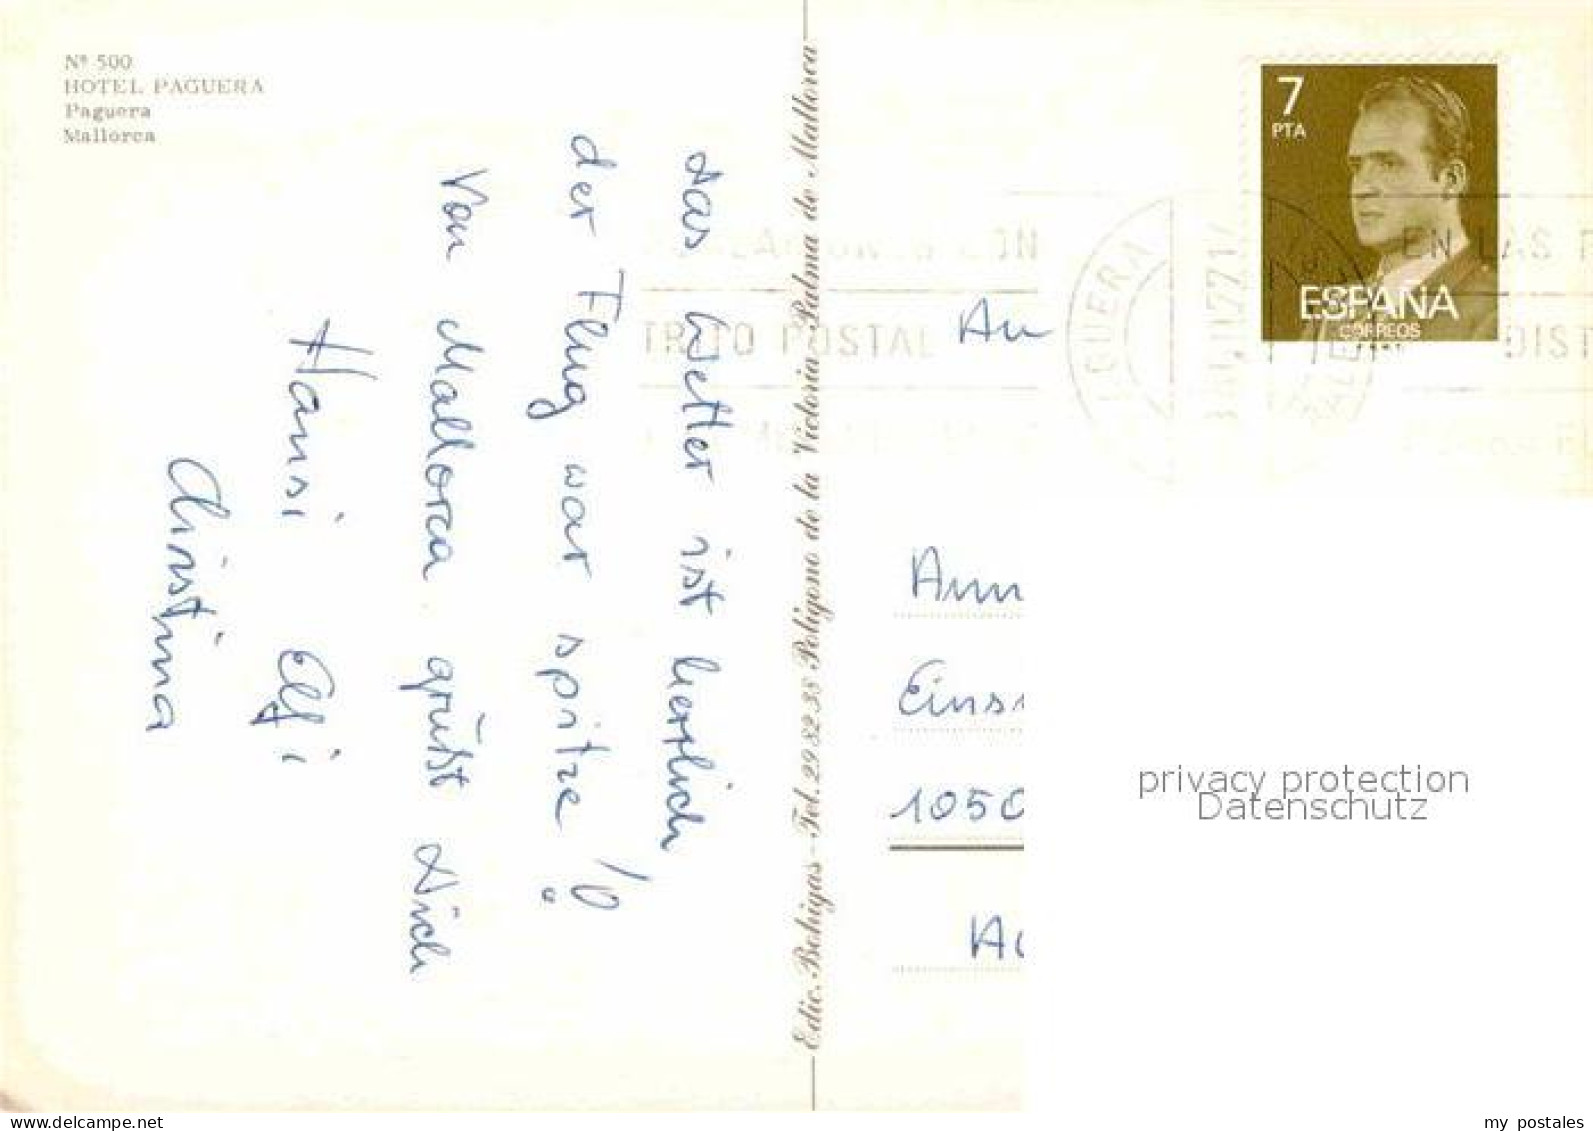 Nº 500
HOTEL PAGUERA
Paguera
Mallorca
Das Wetter ist herrlich
der Flug war spitze!
Von Mallorca grüßt Dich
Hansi Elfi
Christina
Edic. Bohigas - Tel. 29 82 38 Polígono de la Victoria - Palma de Mallorca
7
PTA
ESPAÑA
CORREOS
EN LAS
POSTAL
DIST
An
Eins
1050
privacy protection
Datenschutz
my postales